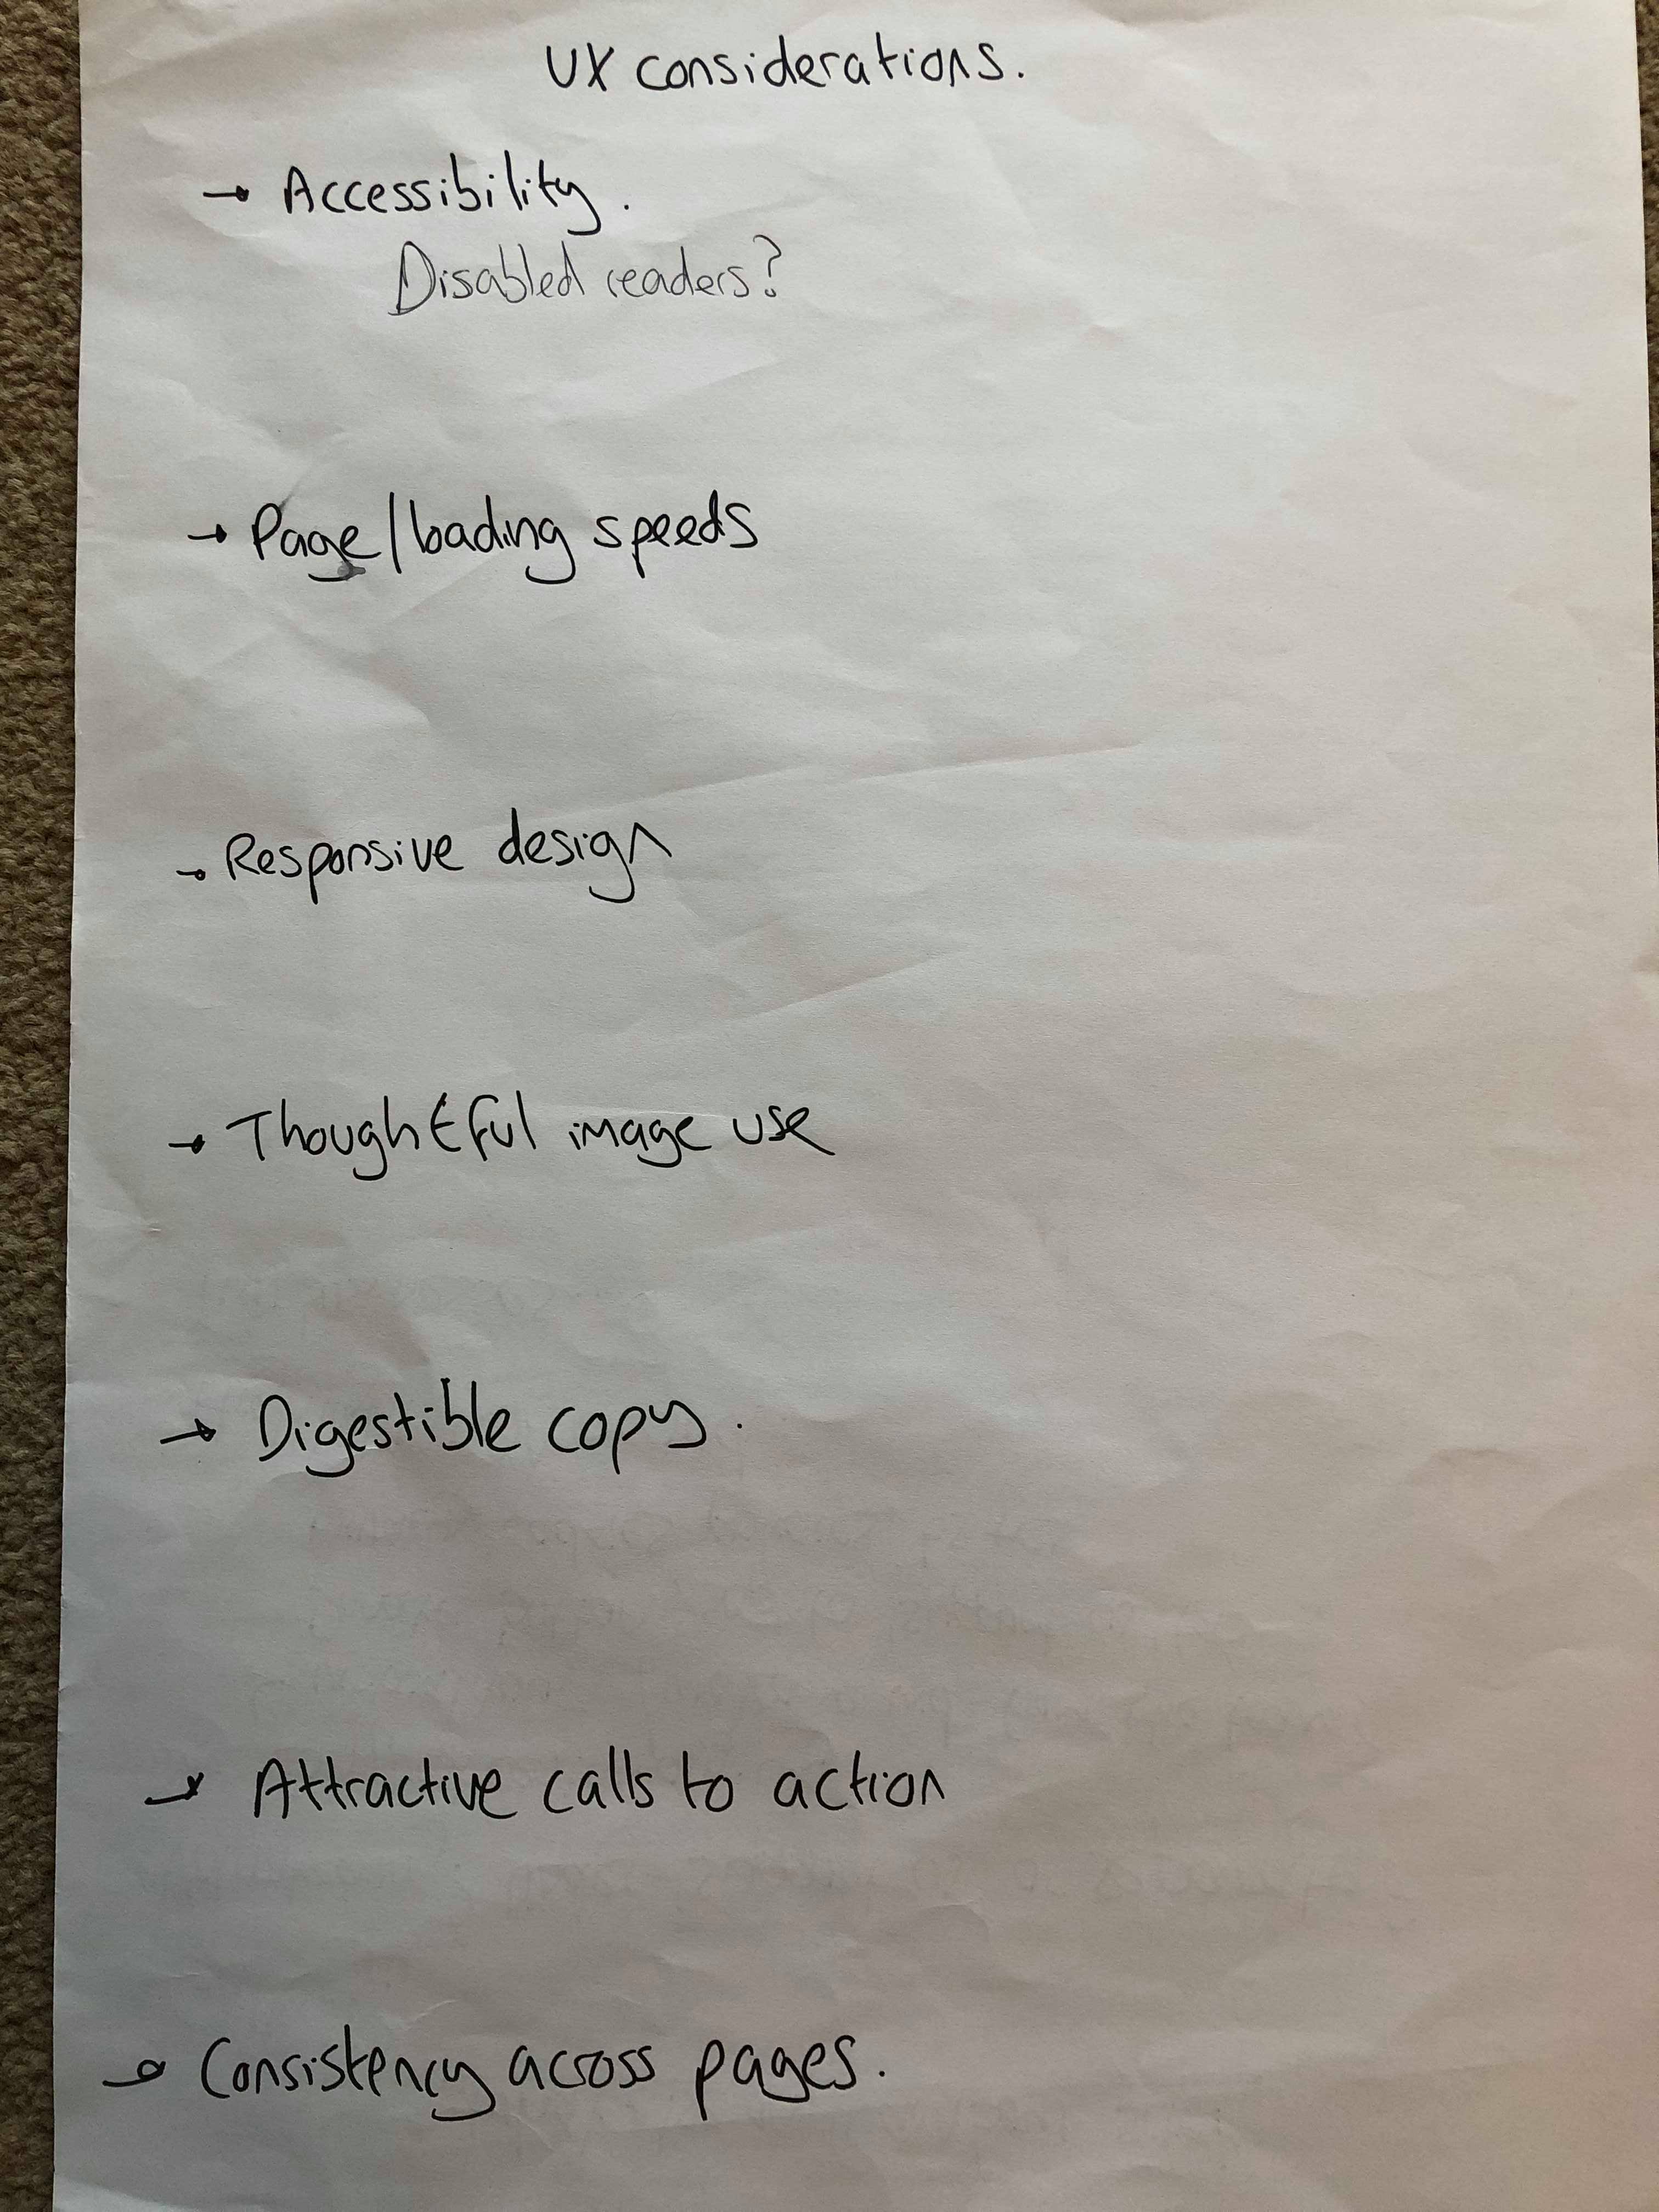 UX considerations.
→ Accessibility.
Disabled readers?
→ Page/loading speeds
→ Responsive design
→ Thoughtful image use
→ Digestible copy.
→ Attractive calls to action
→ Consistency across pages.